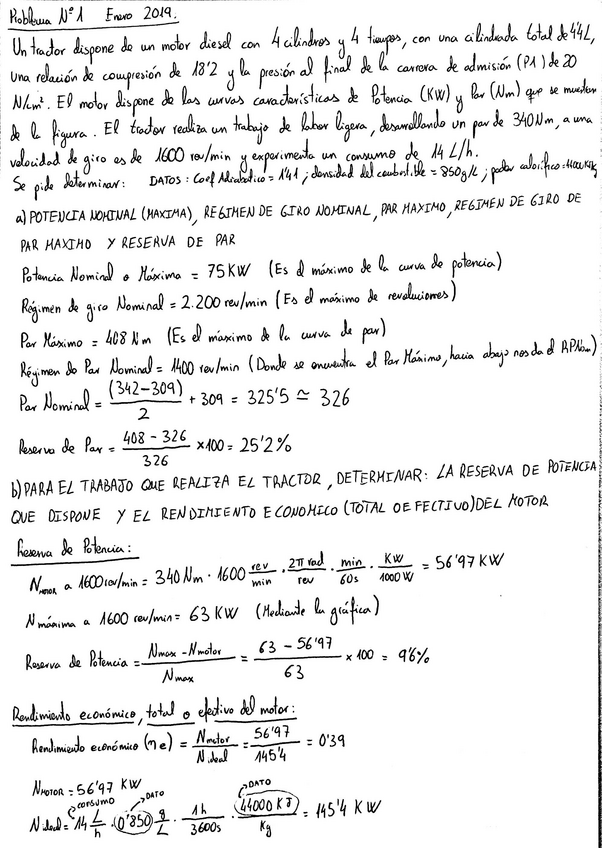 Problema Nº1 Enero 2019.
Un tractor dispone de un motor diesel con 4 cilindros y 4 tiempos, con una cilindrada total de 4'4L,
una relación de compresión de 18'2 y la presión al final de la carrera de admisión (P1) de 20
N/cm². El motor dispone de las curvas características de Potencia (KW) y Par (Nm) que se muestran
de la figura. El tractor realiza un trabajo de labor ligera, desarrollando un par de 340Nm, a una
velocidad de giro es de 1600 rev/min y experimenta un consumo de 14 L/h.
Se pide determinar: DATOS: Coef Adiabático = 1'41; densidad del combustible = 850g/L; poder calorífico =
a) POTENCIA NOMINAL (MAXIMA), REGIMEN DE GIRO NOMINAL, PAR MAXIMO, REGIMEN DE GIRO DE
PAR MAXIMO Y RESERVA DE PAR
Potencia Nominal o Máxima = 75KW (Es el máximo de la curva de potencia)
Régimen de giro Nominal = 2.200 rev/min (Es el máximo de revoluciones)
Par Máximo = 408 Nm (Es el máximo de la curva de par)
Régimen do Par Nominal = 1400 rev/min (Donde se encuentra el Par Máximo, hacia abajo nos da el RPNom)
Par Nominal = (342-309)/2 + 309 = 325'5 ≃ 326
Reserva de Par = 408 - 326/326 x100 = 25'2%
b) PARA EL TRABAJO QUE REALIZA EL TRACTOR, DETERMINAR: LA RESERVA DE POTENCIA
QUE DISPONE Y EL RENDIMIENTO ECONOMICO (TOTAL O EFECTIVO) DEL MOTOR
Reserva de Potencia:
N motor a 1600 rev/min = 340 Nm · 1600 rev/min · 2π rad/rev · min/60s · KW/1000 W = 56'97 KW
N máxima a 1600 rev/min = 63 KW (Mediante la gráfica)
Reserva de Potencia = Nmax - Nmotor/Nmax = 63 - 56'97/63 x 100 = 9'6%
Rendimiento económico, total o efectivo del motor:
Rendimiento económico (ηe) = Nmotor/N ideal = 56'97/145'4 = 0'39
NMOTOR = 56'97 KW
CONSUMO DATO DATO
N ideal = 14 L/h · 0'850 g/L · 1h/3600s · 44000 KJ/Kg = 145'4 KW